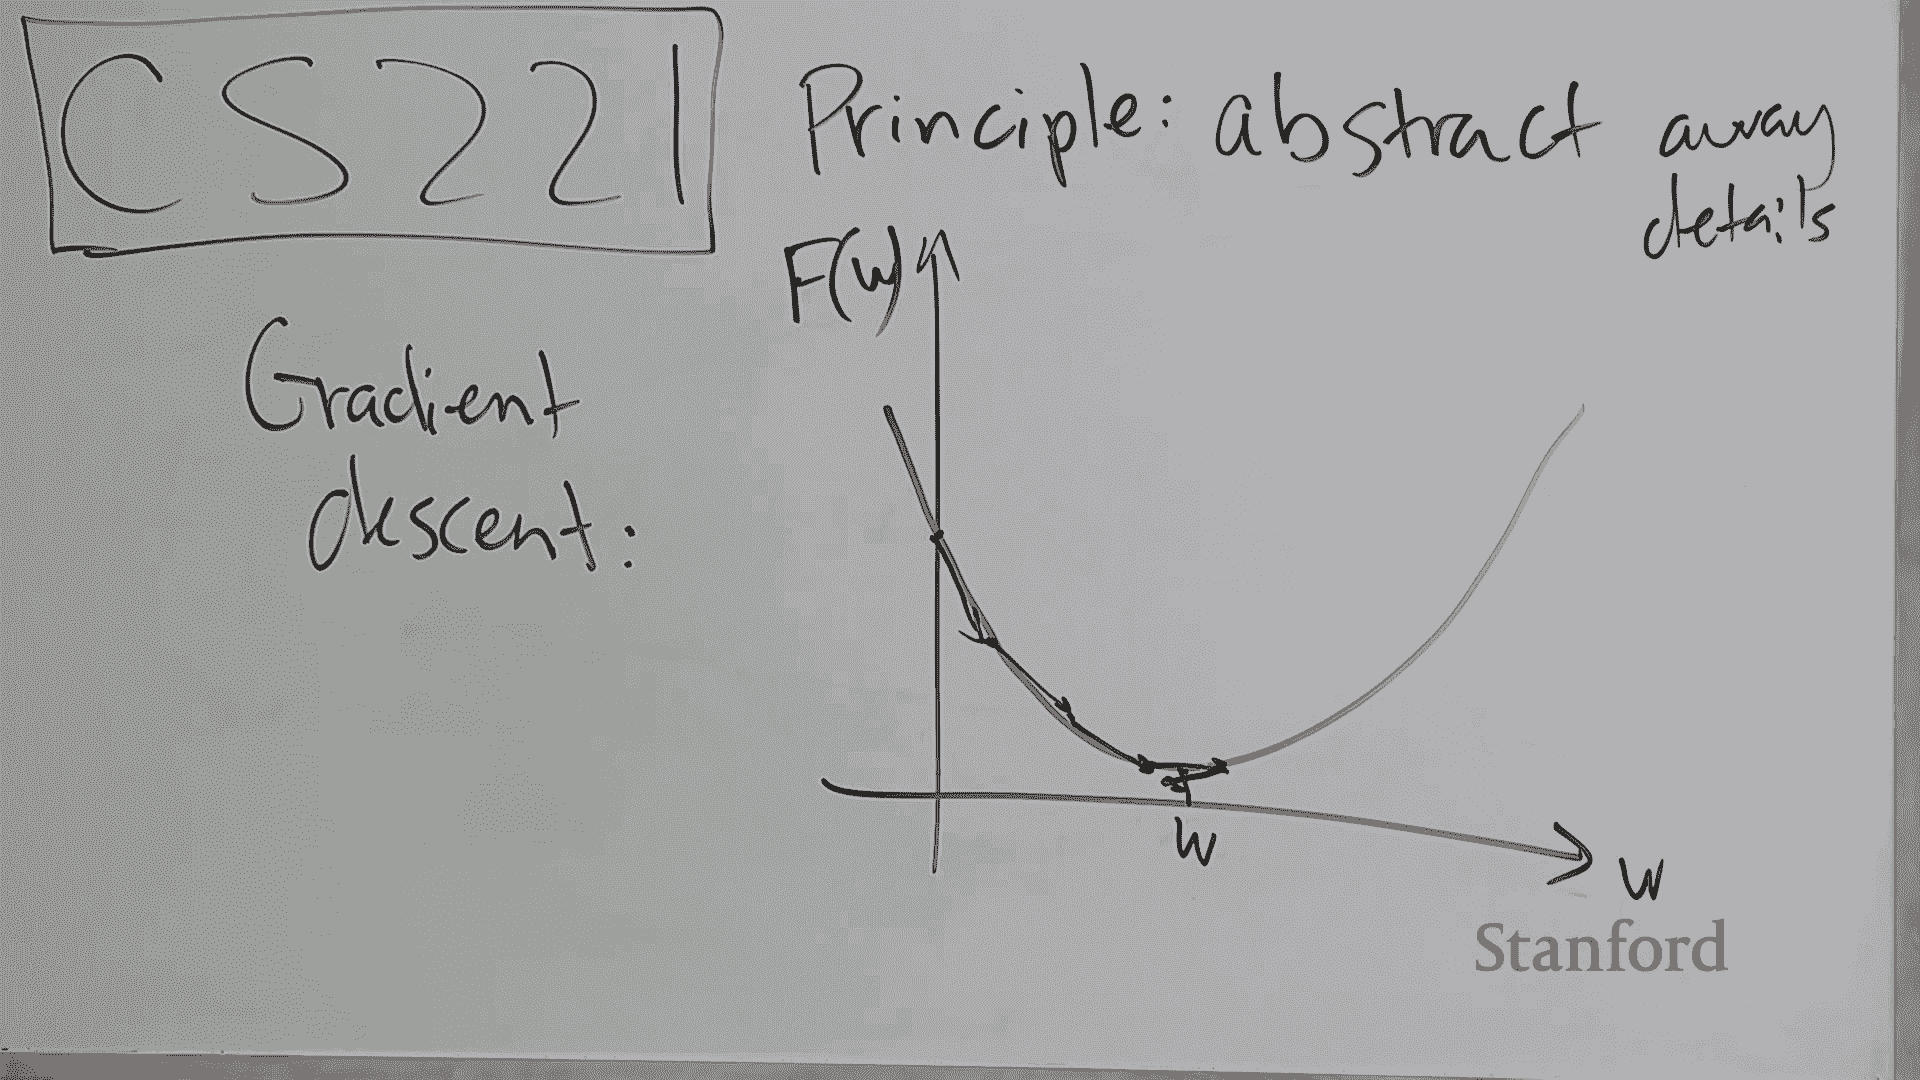 CS221
Principle: abstract away
details
F(w)
Gradient
descent:
w
w
Stanford